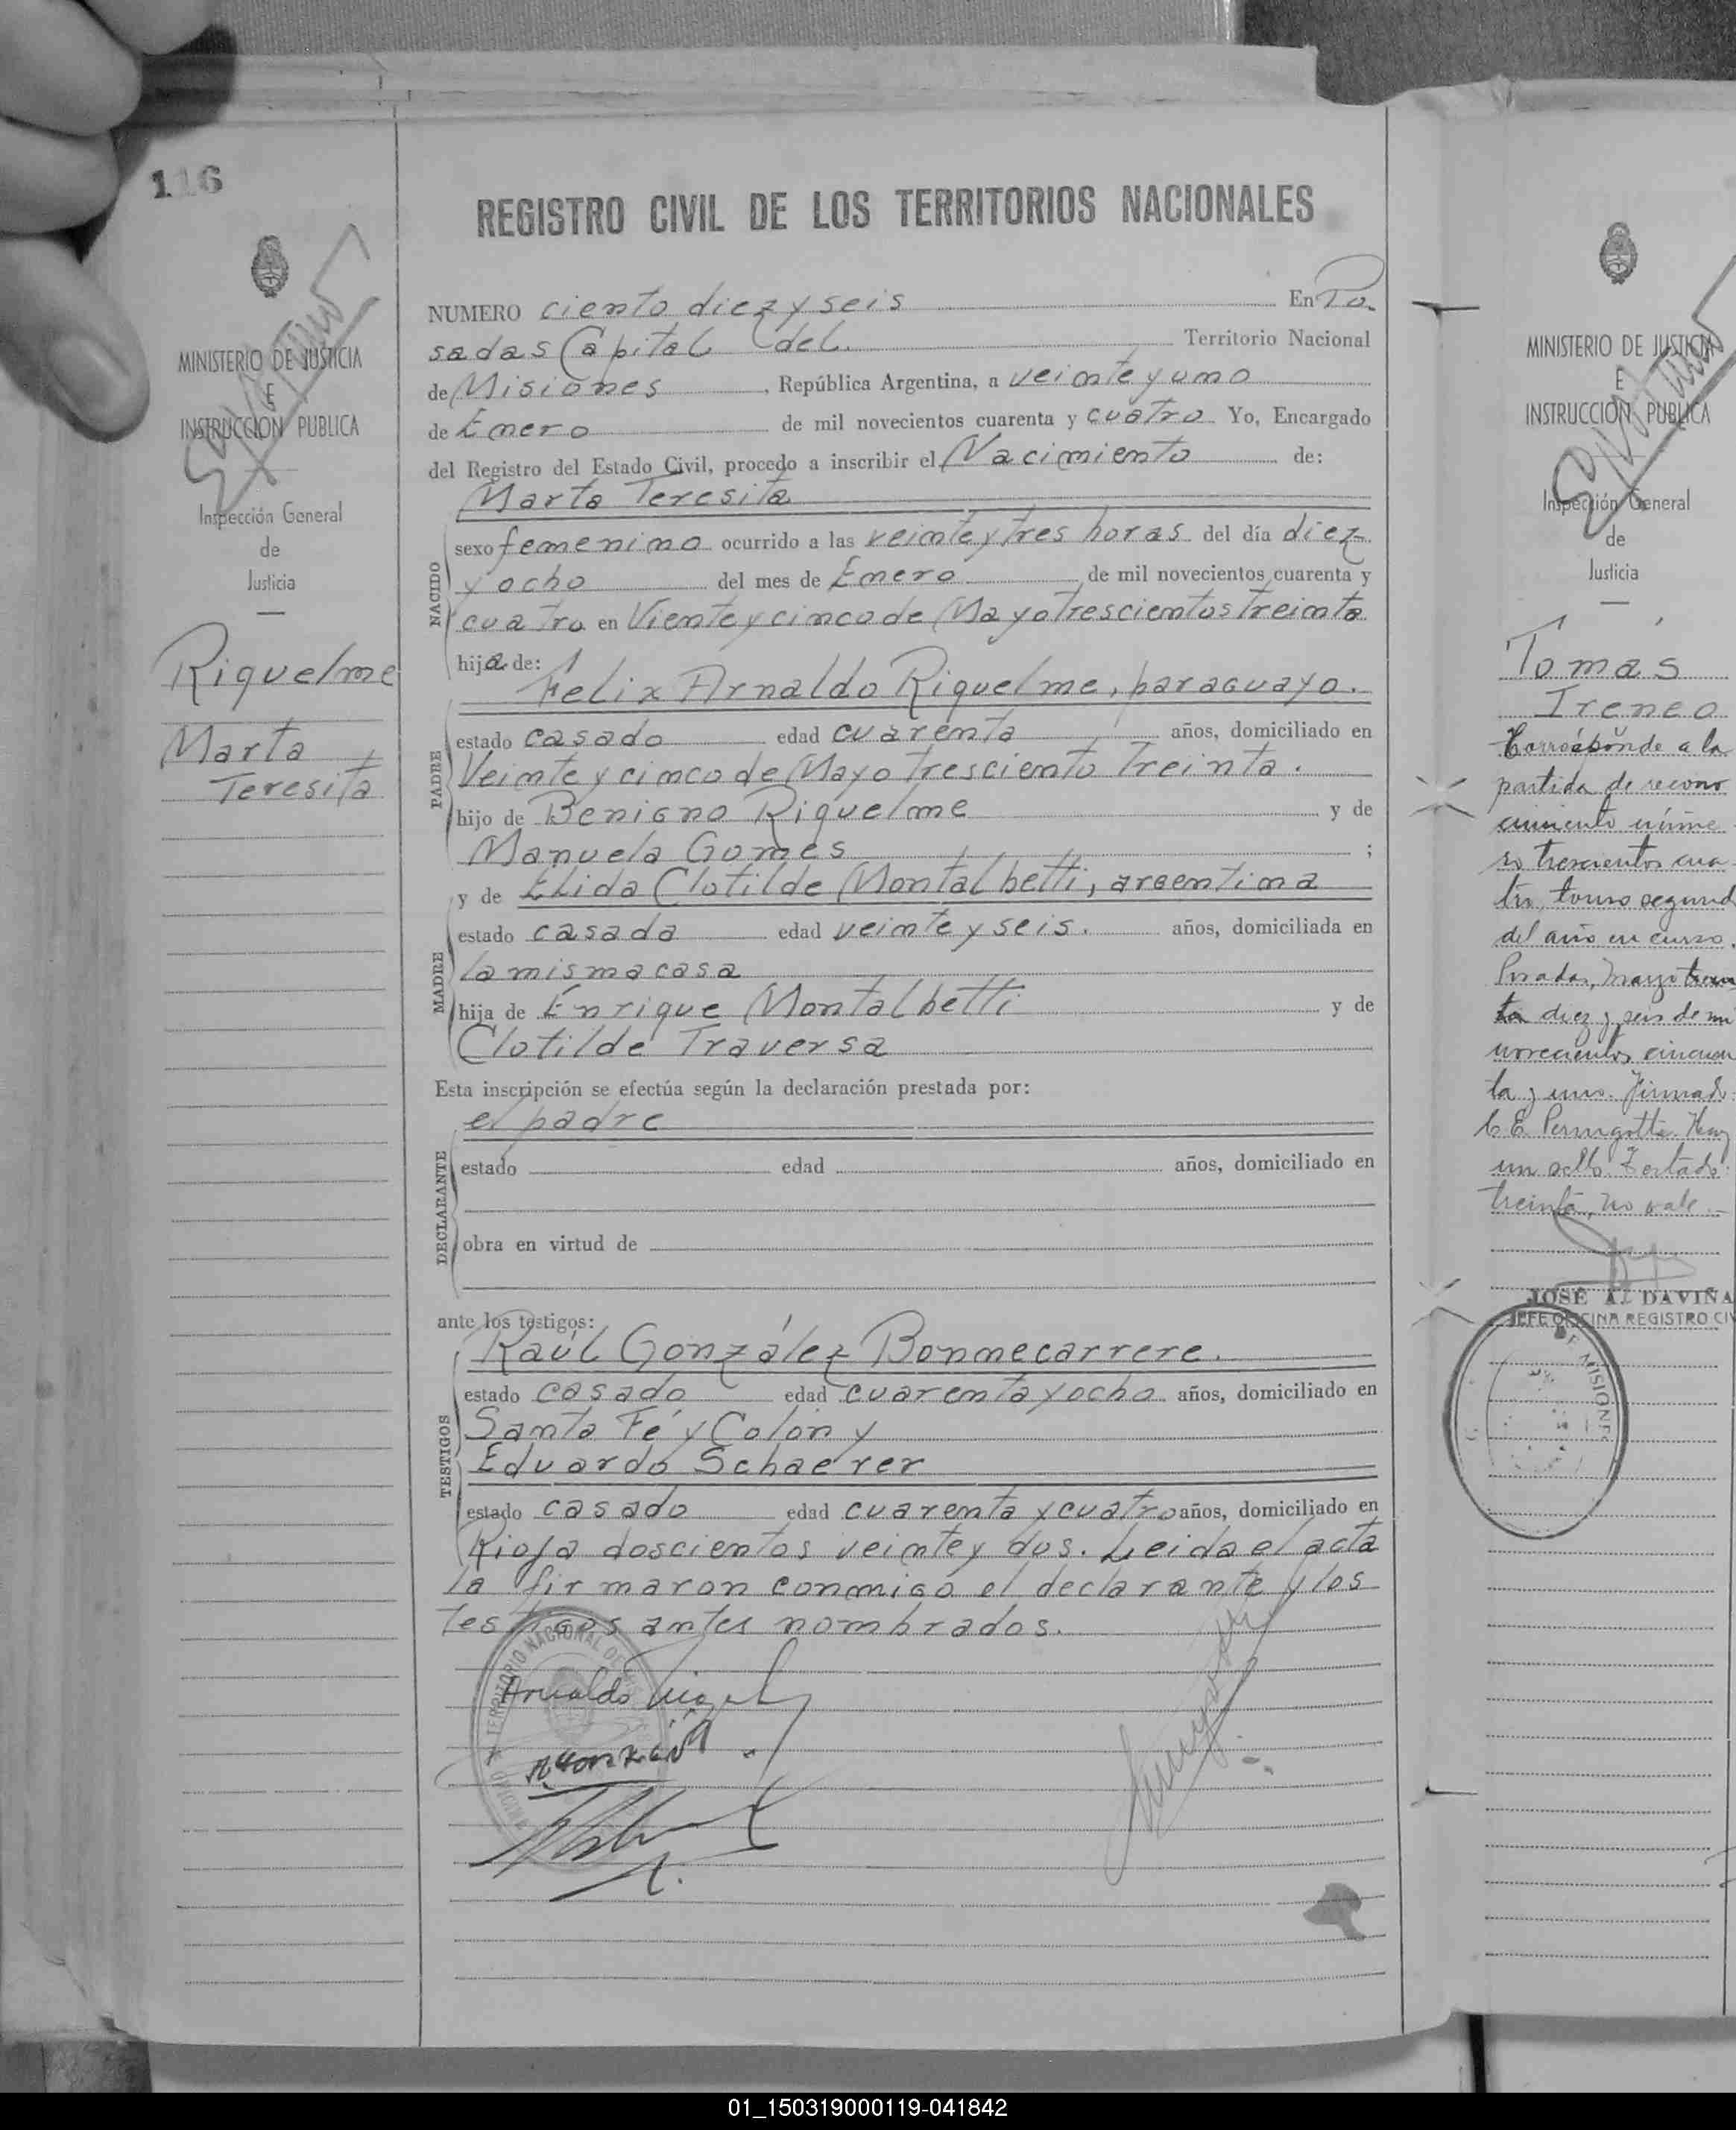 116
REGISTRO CIVIL DE LOS TERRITORIOS NACIONALES
MINISTERIO DE JUSTICIA
E
INSTRUCCIÓN PUBLICA
Inspección General
de
Justicia
Riquelme
Marta
Teresita
NUMERO ciento diez y seis En Po-
sadas Capital del. Territorio Nacional
de Misiones, República Argentina, a veinte y uno
de Enero de mil novecientos cuarenta y cuatro Yo, Encargado
del Registro del Estado Civil, procedo a inscribir el Nacimiento de:
Marta Teresita
NACIDO
sexo femenino ocurrido a las veinte y tres horas del día diez
y ocho del mes de Enero de mil novecientos cuarenta y
cuatro en Viente y cinco de Mayo trescientos treinta
hija de:
Felix Arnaldo Riquelme, paraguayo.
PADRE
estado casado edad cuarenta años, domiciliado en
Veinte y cinco de Mayo tresciento treinta.
hijo de Benigno Riquelme y de
Manuela Gomes ;
y de Elida Clotilde Montalbetti, argentina
MADRE
estado casada edad veinte y seis. años, domiciliada en
la misma casa
hija de Enrique Montalbetti y de
Clotilde Traversa
Esta inscripción se efectúa según la declaración prestada por:
el padre
DECLARANTE
estado edad años, domiciliado en
obra en virtud de
ante los testigos:
Raúl González Bonmecarrere.
TESTIGOS
estado casado edad cuarenta y ocho años, domiciliado en
Santa Fé y Colón y
Eduardo Schaerer
estado casado edad cuarenta y cuatro años, domiciliado en
Rioja doscientos veinte y dos. Leida el acta
la firmaron conmigo el declarante y los
testigos antes nombrados.
TERRITORIO NACIONAL DE
Arnaldo
MINISTERIO DE JUSTICIA
E
INSTRUCCIÓN PUBLICA
Inspección General
de
Justicia
Tomas
Ireneo
Corresponde a la
partida de recono
cimiento núme
ro trescientos cua
tro, tomo segund
del año en curso.
Posadas, Mayo trein
ta diez y seis de mi
novecientos cincuen
ta y uno. Firmado:
C E Perugotti Hay
un sello. Testado:
treinta, no vale.-
JOSÉ A. DAVIÑA
JEFE OFICINA REGISTRO CIV
DE MISIONES
01_150319000119-041842